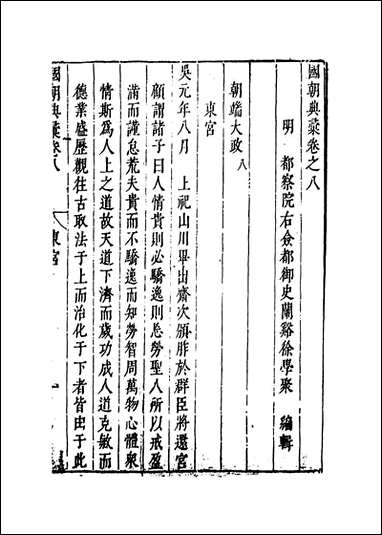 國朝典彚卷之八
明 都察院右僉都御史蘭谿徐學聚 編輯
朝端大政八
東宮
吳元年八月 上祀山川畢出齋次頒胙於群臣將還宮
顧謂諸子曰人情貴則必驕逸則忘勞聖人所以戒盈
滿而謹怠荒夫貴而不驕逸而知勞智周萬物心體衆
情斯爲人上之道故天道下濟而歲功成人道克敏而
德業盛歷觀往古取法于上而治化于下者皆由于此
國朝典彚卷八 東宮 一